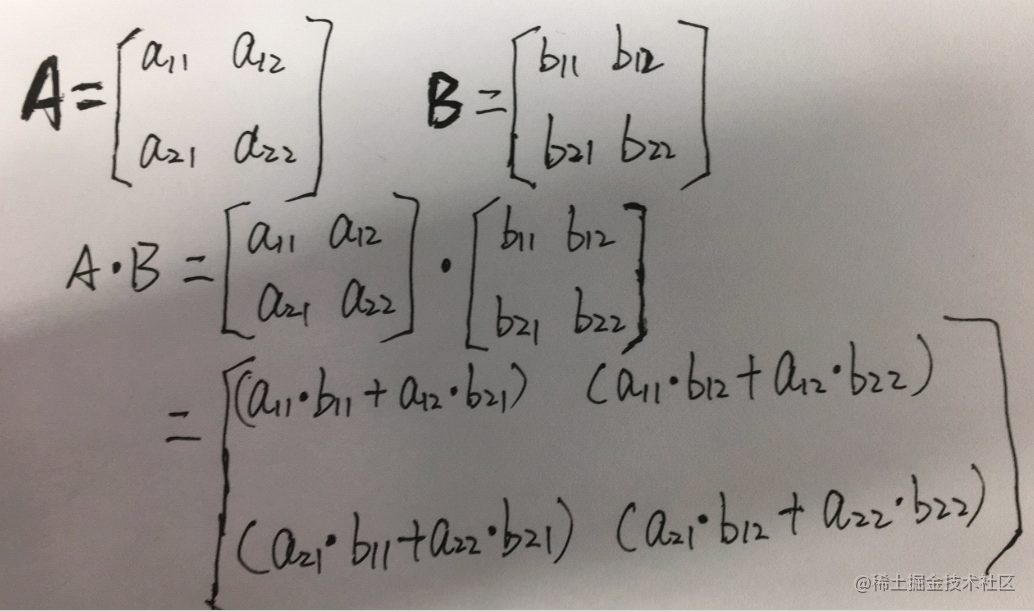 A = [a11 a12 B = [b11 b12
a21 a22] b21 b22]
A·B = [a11 a12 · [b11 b12
a21 a22] b21 b22]
= [(a11·b11+a12·b21) (a11·b12+a12·b22)
(a21·b11+a22·b21) (a21·b12+a22·b22)]
@稀土掘金技术社区